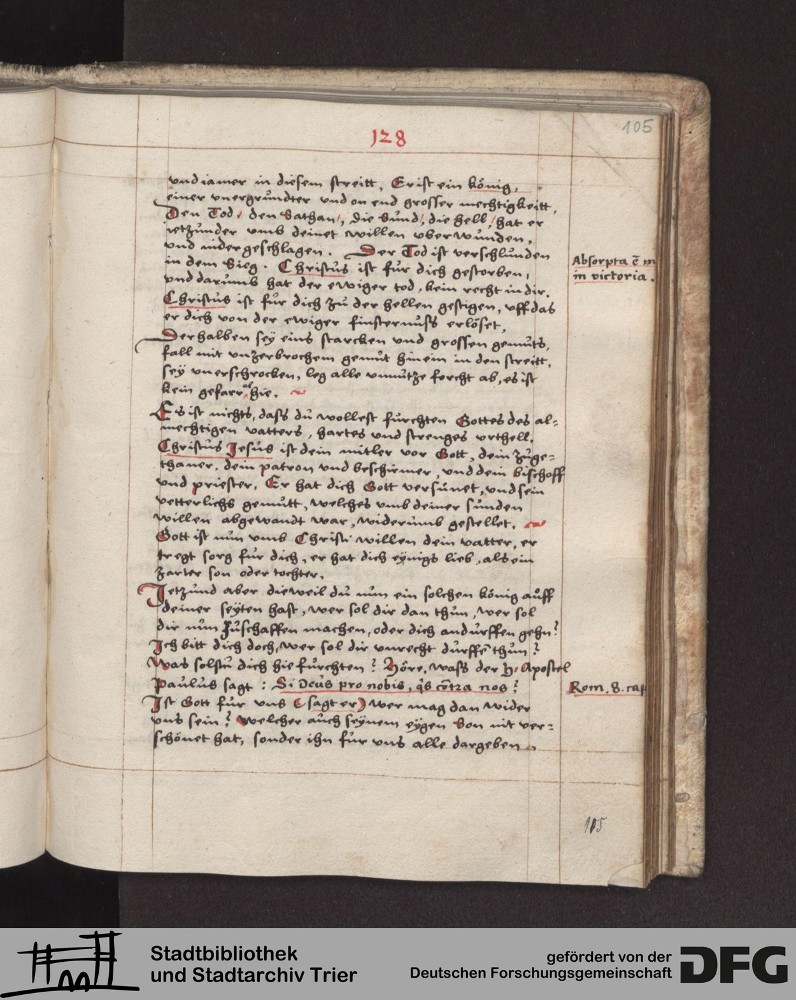 105
128
und iamer in diesem streitt. Er ist ein König,
einer unergrundter und on end grosser mechtigkeitt,
Den Tod, den Sathan, die Sund, die hell, hat er
ietzunder umb deinet willen uberwunden,
und nidergeschlagen. Der Tod ist verschlunden
Absorpta ē m
in dem Sieg. Christus ist für dich gestorben,
in victoria.
und darumb hat der ewiger tod, kein recht in dir.
Christus ist für dich zü der hellen gestigen, uff das
er dich von der ewiger finsternuss erlöset,
Derhalben seÿ eins starcken und grossen gemuts,
fall mit unzerbrochem gemüt hinein in den streitt,
seÿ unerschrocken, leg alle unnutze forcht ab, es ist
kein gefarr hie.
Es ist nichts, dass dü wollest fürchten Gottes des al=
mechtigen vatters, hartes und strenges urthell.
Christus Jesus ist dein mitler vor Gott, dein züge=
thaner, dein patron und beschirmer, und dein bischoff
und priester. Er hat dich Gott versünet, und sein
vetterlichs gemütt, welches umb deiner sunden
willen abgewandt war, widerumb gestellet.
Gott ist nun umb Christi willen dein vatter, er
tregt sorg für dich, er hat dich eÿnigs lieb, als ein
zarter son oder tochter.
Jetzund aber dieweil dü nun ein solchen König auff
deiner seÿten hast, wer sol dir dan thun, wer sol
dir nun züschaffen machen, oder dich andürffen gehn?
Ich bitt dich doch, wer sol dir unrecht dürffē thun?
Was solstu dich hie fürchten? Höre, wass der H. Apostel
Paulus sagt: Si Deus pro nobis, q̃s cōtra nos?
Rom. 8. cap
Ist Gott für uns (sagt er) wer mag dan wider
uns sein? Welcher auch seÿnem eÿgen Son nit ver=
schönet hat, sonder ihn für uns alle dargeben.
105
Stadtbibliothek
und Stadtarchiv Trier
gefördert von der
Deutschen Forschungsgemeinschaft
DFG